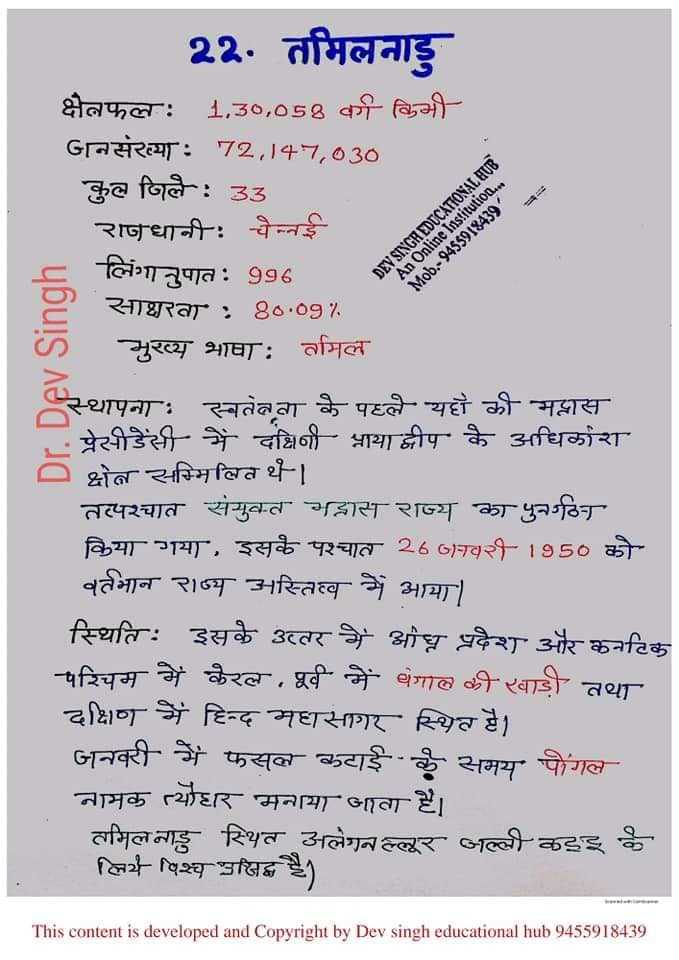 22. तमिलनाडु
क्षेत्रफल : 1,30,058 वर्ग किमी
जनसंख्या : 72,147,030
कुल जिले : 33
राजधानी : चेन्नई
लिंगानुपात : 996
साक्षरता : 80.09%
मुख्य भाषा : तमिल
DEV SINGH EDUCATIONAL HUB
An Online Institution...
Mob.- 9455918439
Dr. Dev Singh
स्थापना : स्वतंत्रता के पहले यहाँ की मद्रास
प्रेसीडेंसी में दक्षिणी प्रायाद्वीप के अधिकांश
क्षेत्र सम्मिलित थे।
तत्पश्चात संयुक्त मद्रास राज्य का पुनर्गठन
किया गया, इसके पश्चात 26 जनवरी 1950 को
वर्तमान राज्य अस्तित्व में आया।
स्थिति : इसके उत्तर में आंध्र प्रदेश और कर्नाटक
पश्चिम में केरल, पूर्व में बंगाल की खाड़ी तथा
दक्षिण में हिन्द महासागर स्थित है।
जनवरी में फसल कटाई के समय पोंगल
नामक त्यौहार मनाया जाता है।
तमिलनाडु स्थित अलेगनल्लूर जल्ली कडइ के
लिये विश्व प्रसिद्ध है)
Scanned with CamScanner
This content is developed and Copyright by Dev singh educational hub 9455918439